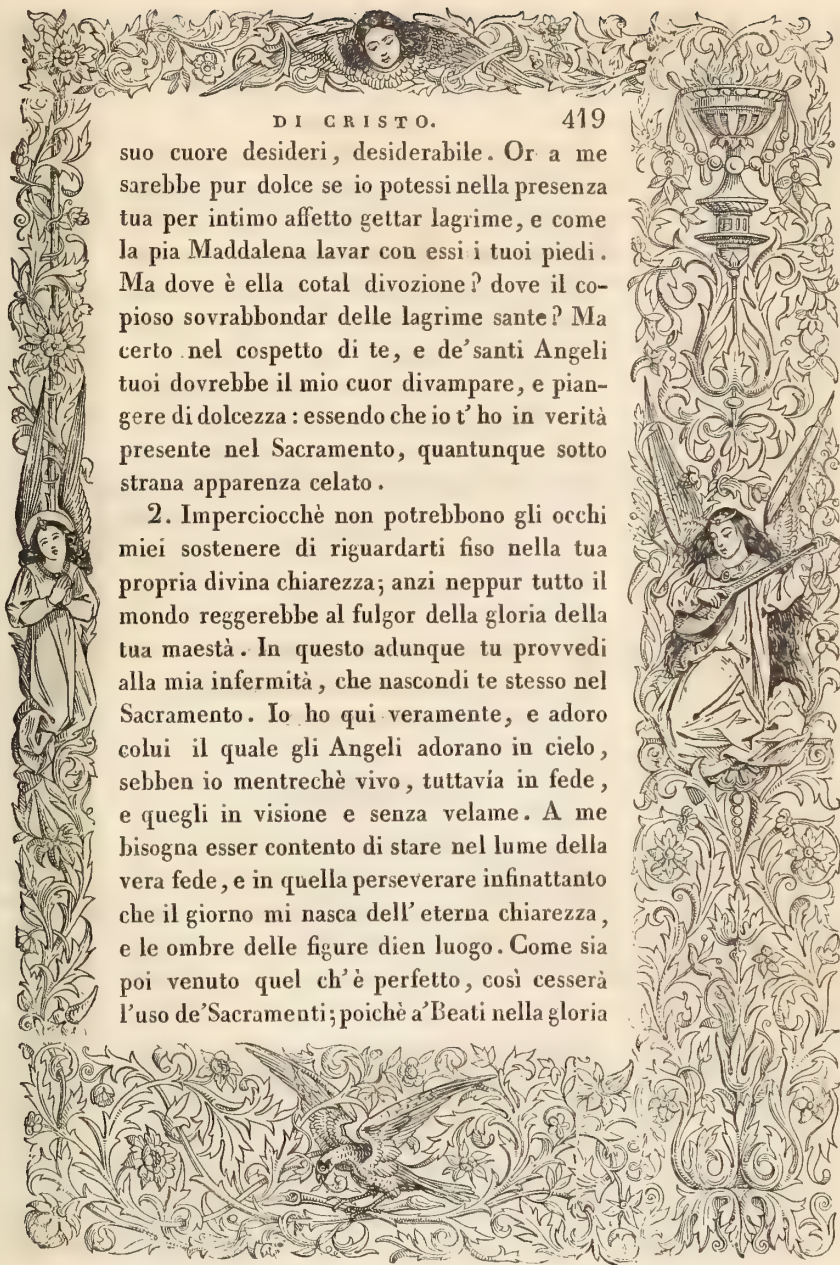 DI CRISTO. 419
suo cuore desideri, desiderabile. Or a me
sarebbe pur dolce se io potessi nella presenza
tua per intimo affetto gettar lagrime, e come
la pia Maddalena lavar con essi i tuoi piedi.
Ma dove è ella cotal divozione? dove il co-
pioso sovrabbondar delle lagrime sante? Ma
certo nel cospetto di te, e de' santi Angeli
tuoi dovrebbe il mio cuor divampare, e pian-
gere di dolcezza: essendo che io t' ho in verità
presente nel Sacramento, quantunque sotto
strana apparenza celato.
2. Imperciocchè non potrebbono gli occhi
miei sostenere di riguardarti fiso nella tua
propria divina chiarezza; anzi neppur tutto il
mondo reggerebbe al fulgor della gloria della
tua maestà. In questo adunque tu provvedi
alla mia infermità, che nascondi te stesso nel
Sacramento. Io ho qui veramente, e adoro
colui il quale gli Angeli adorano in cielo,
sebben io mentrechè vivo, tuttavía in fede,
e quegli in visione e senza velame. A me
bisogna esser contento di stare nel lume della
vera fede, e in quella perseverare infinattanto
che il giorno mi nasca dell' eterna chiarezza,
e le ombre delle figure dien luogo. Come sia
poi venuto quel ch' è perfetto, così cesserà
l'uso de' Sacramenti; poichè a' Beati nella gloria